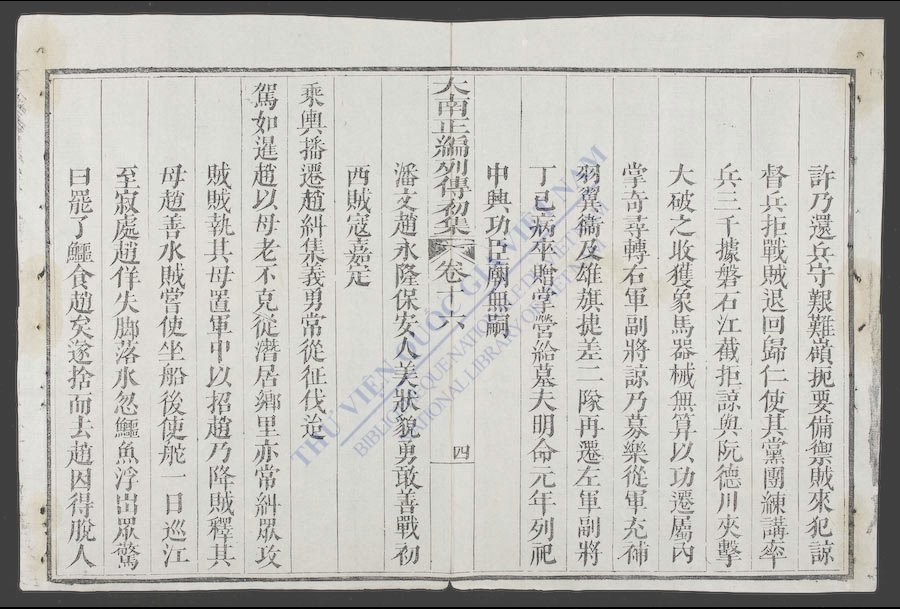 許乃還兵守艱難嶺扼要備禦賊來犯諒
督兵拒戰賊退回歸仁使其黨團練講率
兵三千據磐石江截拒諒與阮德川夾擊
大破之收獲象馬器械無算以功遷屬內
掌奇尋轉右軍副將諒乃募樂從軍充補
羽翼衛及雄旗捷差二隊再遷左軍副將
丁巳病卒贈掌營給墓夫明命元年列祀
中興功臣廟無嗣
大南正編列傳初集 卷十六 四
潘文趙永隆保安人美狀貌勇敢善戰初
西賊寇嘉定
乘輿播遷趙糾集義勇常從征伐迨
駕如暹趙以母老不克從潛居鄉里亦常糾眾攻
賊賊執其母置軍中以招趙乃降賊釋其
母趙善水賊嘗使坐船後使舵一日巡江
至寂處趙佯失脚落水忽鱷魚浮出眾驚
曰罷了鱷食趙矣遂捨而去趙因得脫人
THƯ VIỆN QUỐC GIA VIỆT NAM
BIBLIOTHÈQUE NATIONALE DU VIETNAM
NATIONAL LIBRARY OF VIETNAM